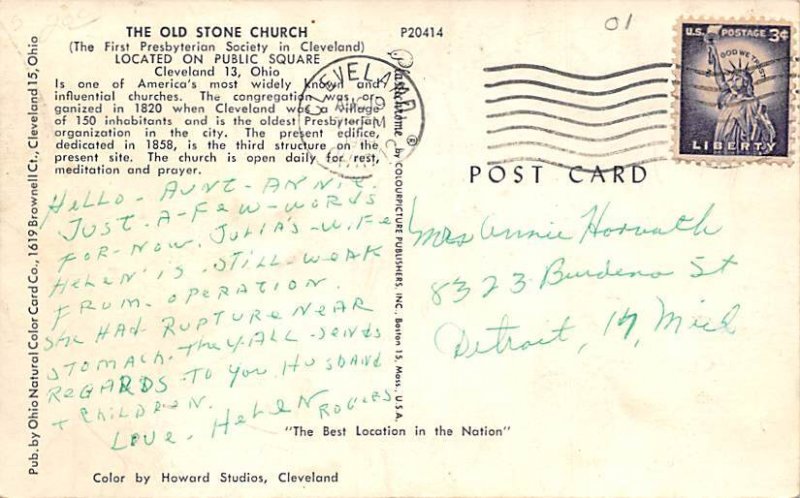 THE OLD STONE CHURCH
(The First Presbyterian Society in Cleveland)
LOCATED ON PUBLIC SQUARE
Cleveland 13, Ohio
Is one of America's most widely known and
influential churches. The congregation was or-
ganized in 1820 when Cleveland was a village
of 150 inhabitants and is the oldest Presbyterian
organization in the city. The present edifice,
dedicated in 1858, is the third structure on the
present site. The church is open daily for rest,
meditation and prayer.
P20414
01
CLEVELAND
PM
U.S. POSTAGE 3¢
IN GOD WE TRUST
LIBERTY
POST CARD
Pub. by Ohio Natural Color Card Co., 1619 Brownell Ct., Cleveland 15, Ohio
Plastichrome ® by COLOURPICTURE PUBLISHERS, INC., Boston 15, Mass., U.S.A.
HELLO - AUNT - ANNIE.
JUST - A - FEW - WORDS
FOR - NOW. JULIA'S - WIFE
HELEN IS - STILL - WEAK
FROM - OPERATION.
SHE HAD RUPTURE NEAR
STOMACH. THEY ALL - SENDS
REGARDS - TO YOU, HUSBAND
+ CHILDREN.
LOVE - HELEN ROGERS
Mrs Annie Horvath
8323 Burdeno St
Detroit, 17, Mich
"The Best Location in the Nation"
Color by Howard Studios, Cleveland